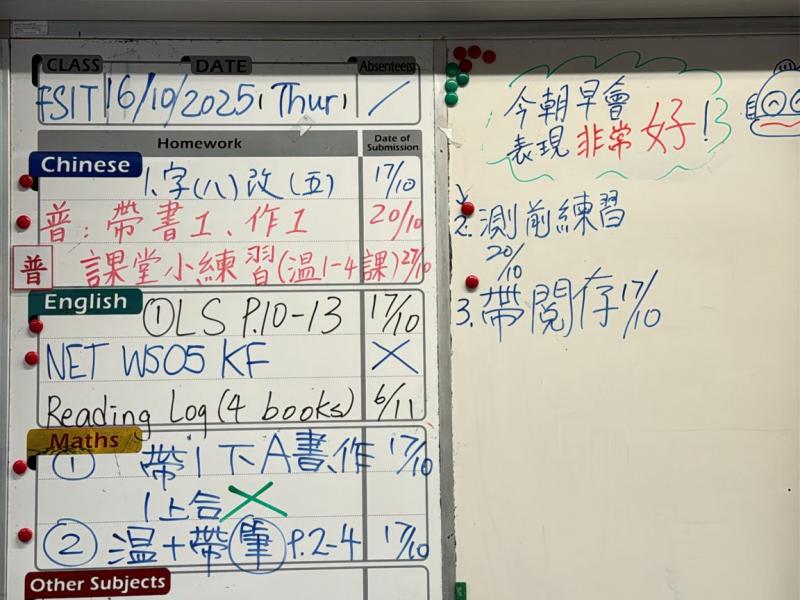 CLASS DATE Absentee(s)
16/10/2025 (Thur) /
Homework Date of Submission
Chinese
1. 字(八) 改(五) 17/10
普: 帶書1、作1 20/10
普 課堂小練習(温1-4課) 27/10
English
① LS P.10-13 17/10
NET WS05 KF ×
Reading Log (4 books) 6/11
Maths
① 帶1下A書、作 17/10
1上合 ×
② 温+帶 P.2-4 17/10
Other Subjects
今朝早會
表現非常好!
2. 測前練習
20/10
3. 帶閱存 17/10